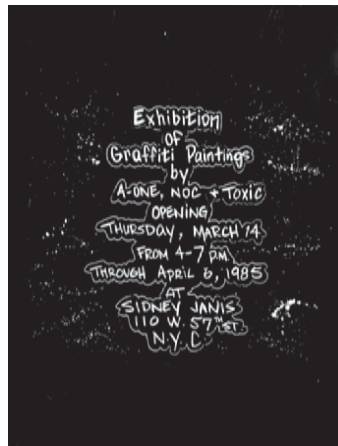 Exhibition
of
Graffiti Paintings
by
A-ONE, NOC + TOXIC
OPENING
THURSDAY, MARCH 14
FROM 4-7 P.M.
THROUGH APRIL 6, 1985
AT
SIDNEY JANIS
110 W. 57TH ST.
N.Y.C.